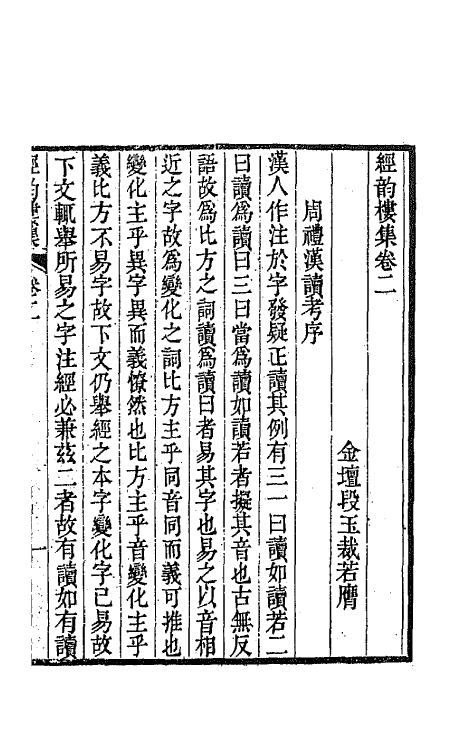 經韵樓集卷二
金壇段玉裁若膺
周禮漢讀考序
漢人作注於字發疑正讀其例有三一曰讀如讀若二
曰讀爲讀曰三曰當爲讀如讀若者擬其音也古無反
語故爲比方之詞讀爲讀曰者易其字也易之以音相
近之字故爲變化之詞比方主乎同音同而義可推也
變化主乎異字異而義憭然也比方主乎音變化主乎
義比方不易字故下文仍舉經之本字變化字已易故
下文輒舉所易之字注經必兼茲二者故有讀如有讀
經韵樓集 卷二 一